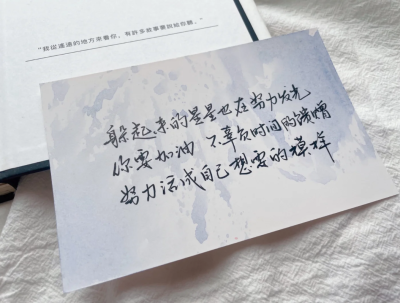 "我從遙遠的地方來看你，有許多故事要說給你聽。"
躲起来的星星也在努力发光
你要加油 不辜负时间的馈赠
努力活成自己想要的模样